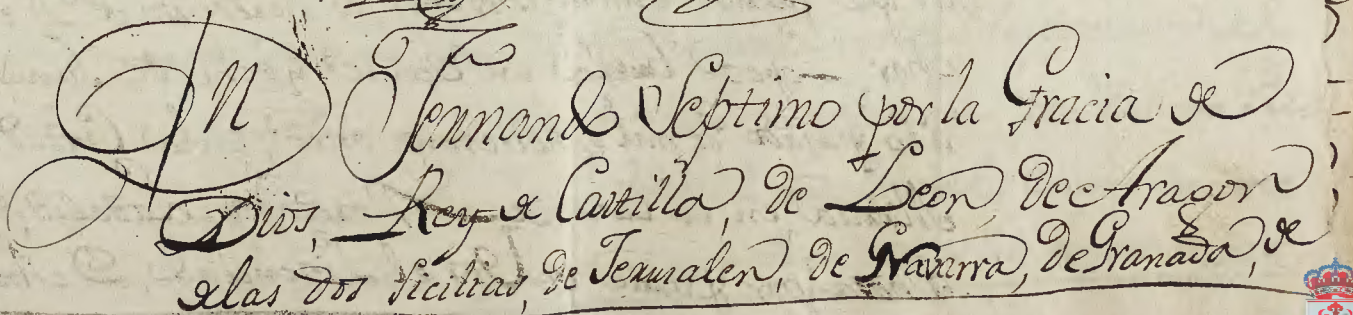 Dn Fernando Septimo por la Gracia de
Dios, Rey de Castilla, de Leon, de Aragon
de las dos Sicilias, de Jerusalen, de Navarra, de Granada, de